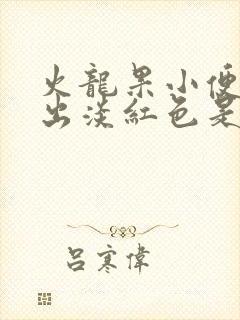 火龍果小便
出淡紅色是
呂寒偉